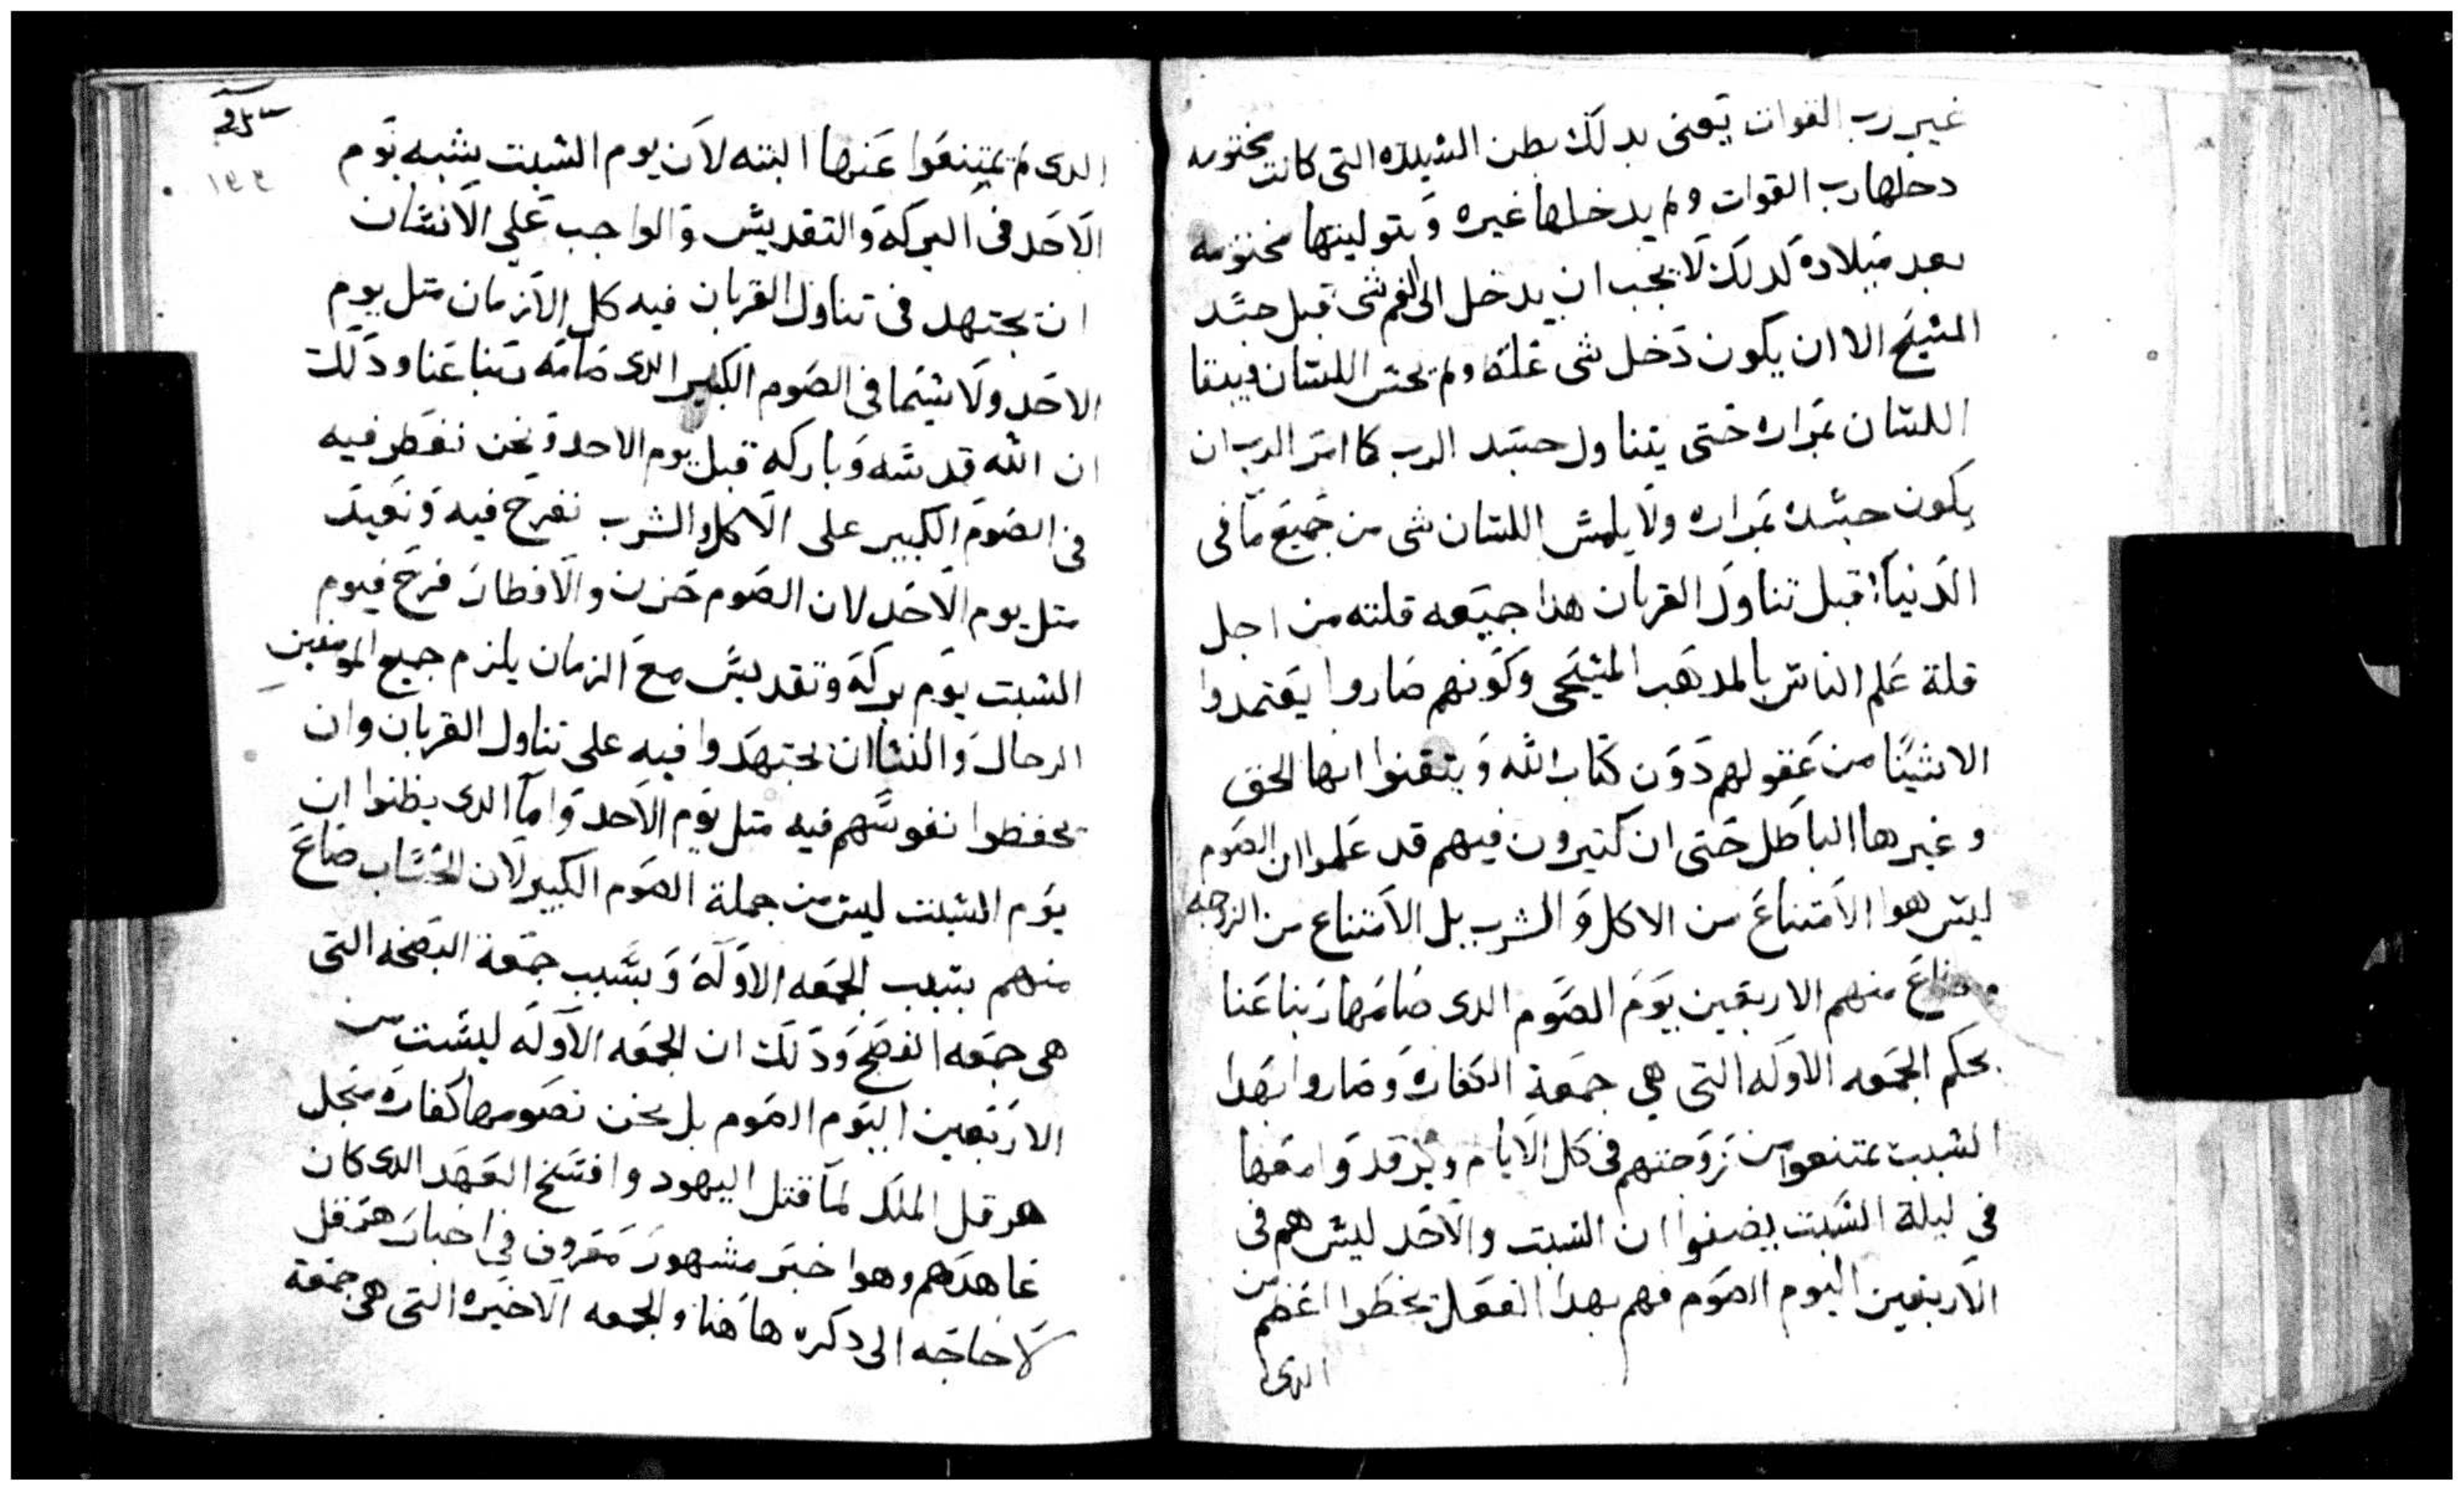 غير رب القوات يعنى بدلك بطن الشيده التى كانت مختومه
دخلها رب القوات ولم يدخلها غيره وبتوليتها مختومه
بعد ميلاده لدلك لا يجب ان يدخل الى الفم شى قبل جشد
المشيح الا ان يكون دخل شى غلبه ولم يحش اللشان ويبقا
اللشان بمراره حتى يتناول جشد الرب كا امر الرب ان
يكون جشده بمراره ولا يلمش اللشان شى من جميع ما فى
الدنيا قبل تناول القربان هدا جميعه قلته من اجل
قلة علم الناش بالمدهب المشيحى وكونهم صاروا يعتمدوا
الاشيا من عقولهم دون كتاب الله ويتقنوا انها الحق
وغيرها الباطل حتى ان كتيرون فيهم قد علموا ان الصوم
ليش هوا الامتناع من الاكل والشرب بل الامتناع من الزوجه
وضاع منهم الاربعين يوم الصوم الدى صامها ربنا عنا
بحكم الجمعه الاوله التى هى جمعة الكفاره وصاروا بهدا
الشبب يمتنعوا من زوجتهم فى كل الايام ويرقدوا معها
فى ليلة الشبت يضنوا ان الشبت والاحد ليش هم فى
الاربعين اليوم الصوم فهم بهدا الفعل يخطوا اعضم من
الدى
الدى لم يمتنعوا عنها البته لان يوم الشبت يشبه يوم
الاحد فى البركه والتقديش والواجب على الانشان
ان يجتهد فى تناول القربان فيه كل الازمان متل يوم
الاحد ولا شيما فى الصوم الكبير الدى صامه ربنا عنا ودلك
ان الله قدشه وباركه قبل يوم الاحد ونحن نفطر فيه
فى الصوم الكبير على الاكل والشرب نفرح فيه ونعيد
متل يوم الاحد لان الصوم حزن والافطار فرح فيوم
الشبت يوم بركه وتقديش مع الزمان يلزم جميع المومنين
الرجال والنشا ان يجتهدوا فيه على تناول القربان وان
يحفظوا نفوشهم فيه متل يوم الاحد واما الدى يظنوا ان
يوم الشبت ليش من جملة الصوم الكبير لان الحشاب ضاع
منهم بشبب الجمعه الاوله وبشبب جمعة البصخه التى
هى جمعه الفصح ودلك ان الجمعه الاوله ليشت من
الاربعين اليوم الصوم بل نحن نصومها كفاره منجل
هرقل الملك لما قتل اليهود وافشخ العهد الدى كان
عاهدهم وهوا خبر مشهور مقرون فى اخبار هرقل
لا حاجه الى دكره هاهنا والجمعه الاخيره التى هى جمعة